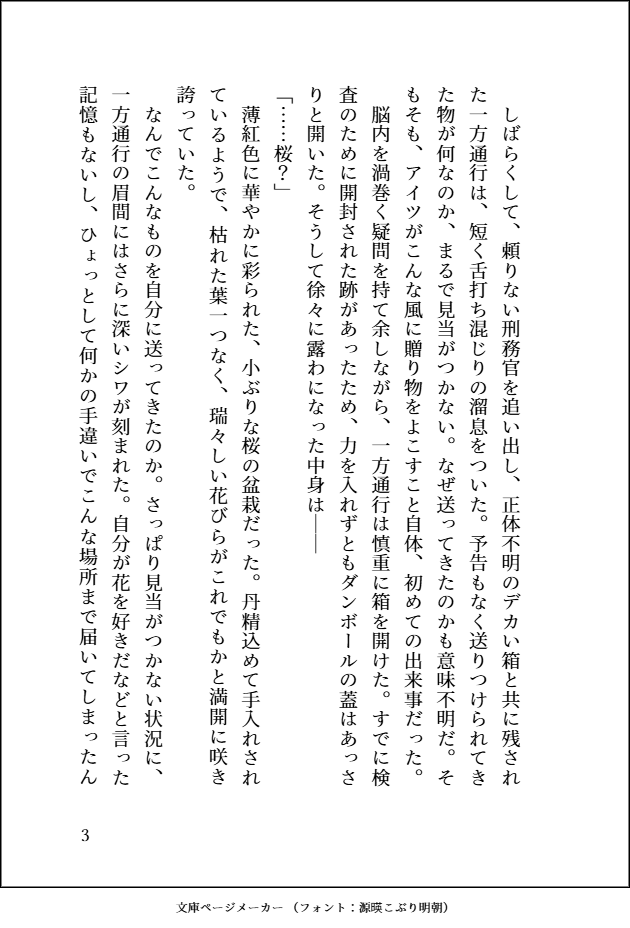 しばらくして、頼りない刑務官を追い出し、正体不明のデカい箱と共に残され
た一方通行は、短く舌打ち混じりの溜息をついた。予告もなく送りつけられてき
た物が何なのか、まるで見当がつかない。なぜ送ってきたのかも意味不明だ。そ
もそも、アイツがこんな風に贈り物をよこすこと自体、初めての出来事だった。
脳内を渦巻く疑問を持て余しながら、一方通行は慎重に箱を開けた。すでに検
査のために開封された跡があったため、力を入れずともダンボールの蓋はあっさ
りと開いた。そうして徐々に露わになった中身は――
「……桜？」
薄紅色に華やかに彩られた、小ぶりな桜の盆栽だった。丹精込めて手入れされ
ているようで、枯れた葉一つなく、瑞々しい花びらがこれでもかと満開に咲き
誇っていた。
なんでこんなものを自分に送ってきたのか。さっぱり見当がつかない状況に、
一方通行の眉間にはさらに深いシワが刻まれた。自分が花を好きだなどと言った
記憶もないし、ひょっとして何かの手違いでこんな場所まで届いてしまったん
3
文庫ページメーカー（フォント：源暎こぶり明朝）